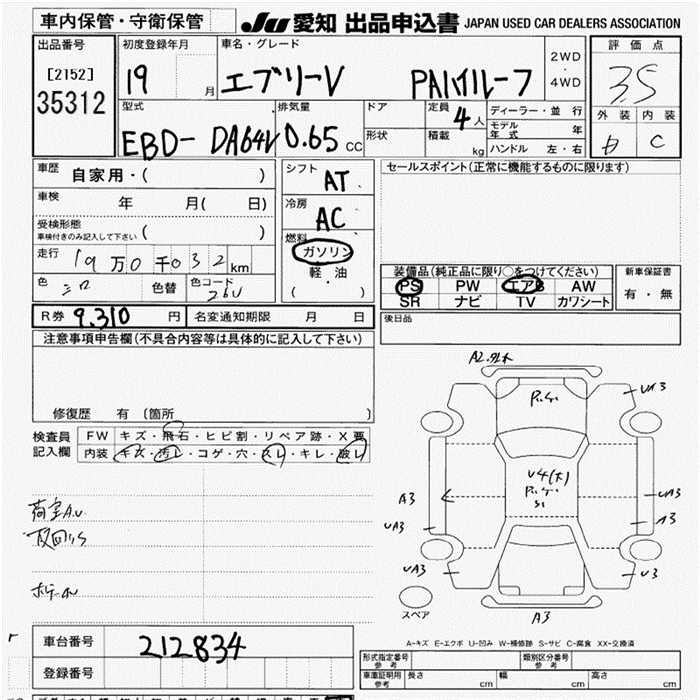 車内保管・守衛保管
JU 愛知 出品申込書 JAPAN USED CAR DEALERS ASSOCIATION
出品番号
[2152]
35312
初度登録年月
19 月
車名・グレード
エブリーV PAハイルーフ
2WD
・
4WD
評価点
3.5
外装 内装
C
型式
EBD- DA64V
排気量
0.65 CC
ドア
形状
定員
4人
積載 kg
ディーラー・並行
モデル年式 年
ハンドル 左・右
車歴
自家用・( )
車検
年 月( 日)
受検形態
車検付きのみ記入して下さい ( )
走行
19万0千032km
色
シロ
色替
色コード
26U
シフト
AT
冷房
AC
燃料
ガソリン
軽・油
( )
セールスポイント(正常に機能するものに限ります)
装備品(純正品に限り○をつけてください)
PS PW エアB AW
SR ナビ TV カワシート
新車保証書
有・無
後日品
R券 9,310 円
名変通知期限 月 日
注意事項申告欄(不具合内容等は具体的に記入して下さい)
修復歴 有 〔箇所 〕
検査員
記入欄
FW キズ・飛石・ヒビ割・リペア跡・X要
内装 キズ・汚レ・コゲ・穴・スレ・キレ・破レ
荷室A.U
A3
UA3
UA3
UA3
UA3
A3
U3
A3
スペア
A-キズ E-エクボ U-凹み W-補修跡 S-サビ C-腐食 XX-交換済
車台番号
212834
登録番号
型式指定番号
参考
類別区分番号
参考
車庫証明用
参考
長さ cm
幅 cm
高さ cm